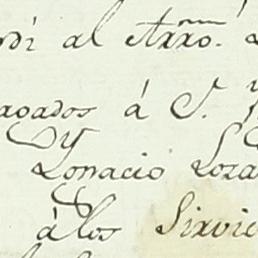 di al Arro.
agados á S.
Ygnacio Loza
á los Sirvie